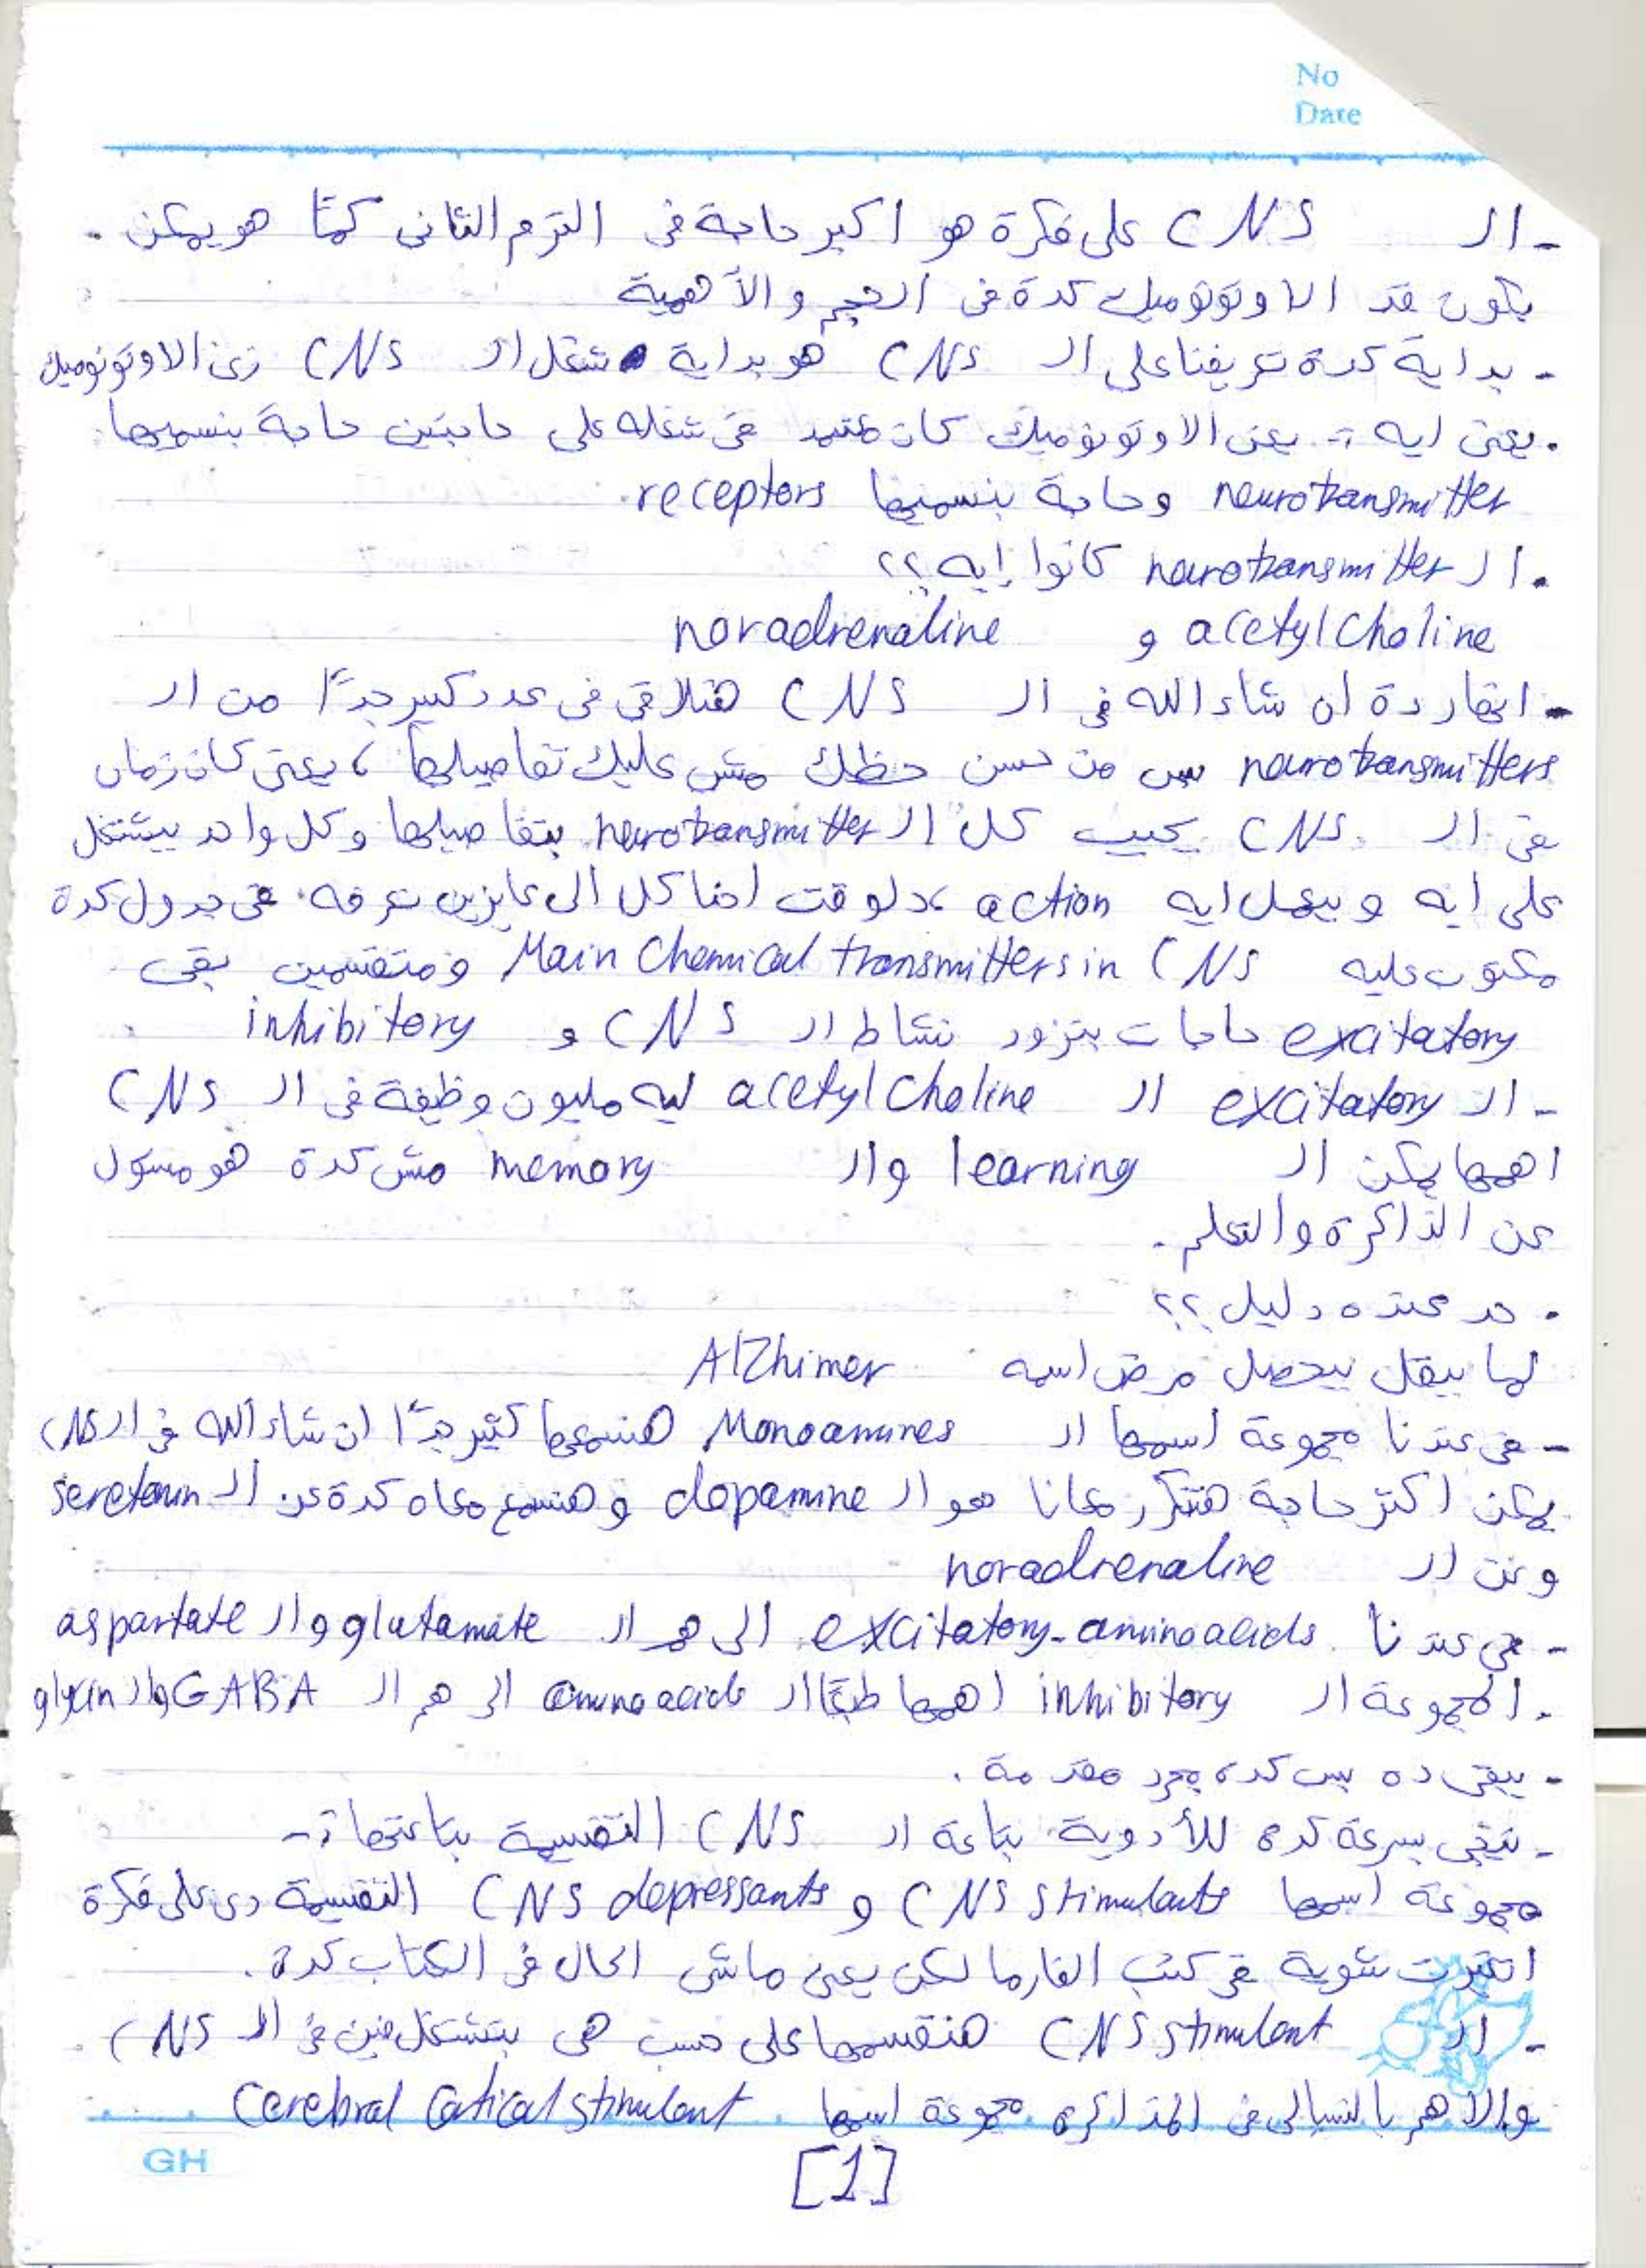 No
Date
- الـ CNS على فكرة هو اكبر حاجة فى الترم الثانى كمًّا هو يمكن .
يكون قد الاوتونوميك كدة فى الحجم والأهمية
- بداية كدة تعريفنا على الـ CNS هو بداية شغل الـ CNS زى الاوتونوميك
. يعنى ايه :- يعنى الاوتونوميك كان معتمد فى شغله على حاجتين حاجة بنسميها
neurotransmitter وحاجة بنسميها receptors.
. الـ neurotransmitter كانوا إيه ؟؟
acetylcholine و noradrenaline
- انهاردة ان شاء الله فى الـ CNS هنلاقى فى عدد كبير جدًا من الـ
neurotransmitters بس من حسن حظك مش عليك تفاصيلها ، يعنى كان زمان
فى الـ CNS يجيب كل الـ neurotransmitter بتفاصيلها وكل واحد بيشتغل
على ايه وبيعمل ايه action ، دلوقت احنا كل الى عايزين نعرفه فى جدول كدة
مكتوب عليه Main Chemical transmitters in CNS ومتقسمين بقى
excitatory حاجات بتزود نشاط الـ CNS و inhibitory
- الـ excitatory الـ acetylcholine ليه مليون وظيفة فى الـ CNS
اهمها يمكن الـ learning والـ memory مش كدة هو مسؤل
عن الذاكرة والتعلم .
. حد عنده دليل ؟؟
لما بيقل بيحصل مرض اسمه AlZhimer
- فى عندنا مجموعة اسمها الـ Monoamines هنسمعها كثير جدًا ان شاء الله فى الـ CNS
يمكن اكتر حاجة هتتكرر معانا هو الـ dopamine وهنسمع معاه كدة عن الـ seretonin
وعن الـ noradrenaline
- فى عندنا excitatory-aminoacids الى هم الـ glutamate والـ aspartate
. المجموعة الـ inhibitory اهمها طبعًا الـ amino acids الى هم الـ GABA والـ glycin
- يبقى ده بس كده مجرد مقدمة .
- نيجى بسرعة كده للأدوية بتاعة الـ CNS التقسيمة بتاعتها :-
مجموعة اسمها CNS stimulants و CNS depressants التقسيمة دى على فكرة
اتغيرت شوية فى كتب الفارما لكن يعنى ماشى الحال فى الكتاب كدة .
- الـ CNS stimulant هنقسمها على حسب هى بتشتغل فين فى الـ CNS .
والاهم بالنسبالى فى المذاكره مجموعة اسمها Cerebral Cortical stimulant
GH
[1]